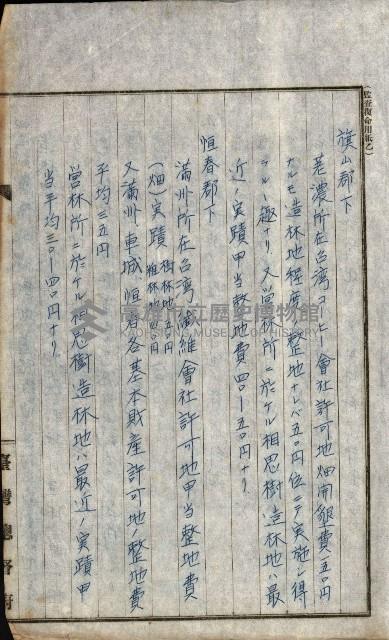 (監査復命用紙乙)
旗山郡下
荖濃所在台湾コーヒー會社許可地畑開墾費一五〇円
ナルモ造林地程度ノ整地ナレバ五〇円位ニテ実施シ得
ラルー趣ナリ 又営林所ニ於ケル相思樹造林地ハ最
近ノ実蹟甲当整地費四〇ー五〇円ナリ
恒春郡下
満州所在台湾繊維會社許可地甲当整地費
(畑)実蹟 樹林地五〇円
粗林地四〇円
又満州、車城、恒春各基本財産許可地ノ整地費
平均三五円
営林所ニ於ケル相思樹造林地ハ最近ノ実蹟甲
当平均三〇ー四〇円ナリ
臺灣總督府
高雄市立歷史博物館
KAOHSIUNG MUSEUM OF HISTORY